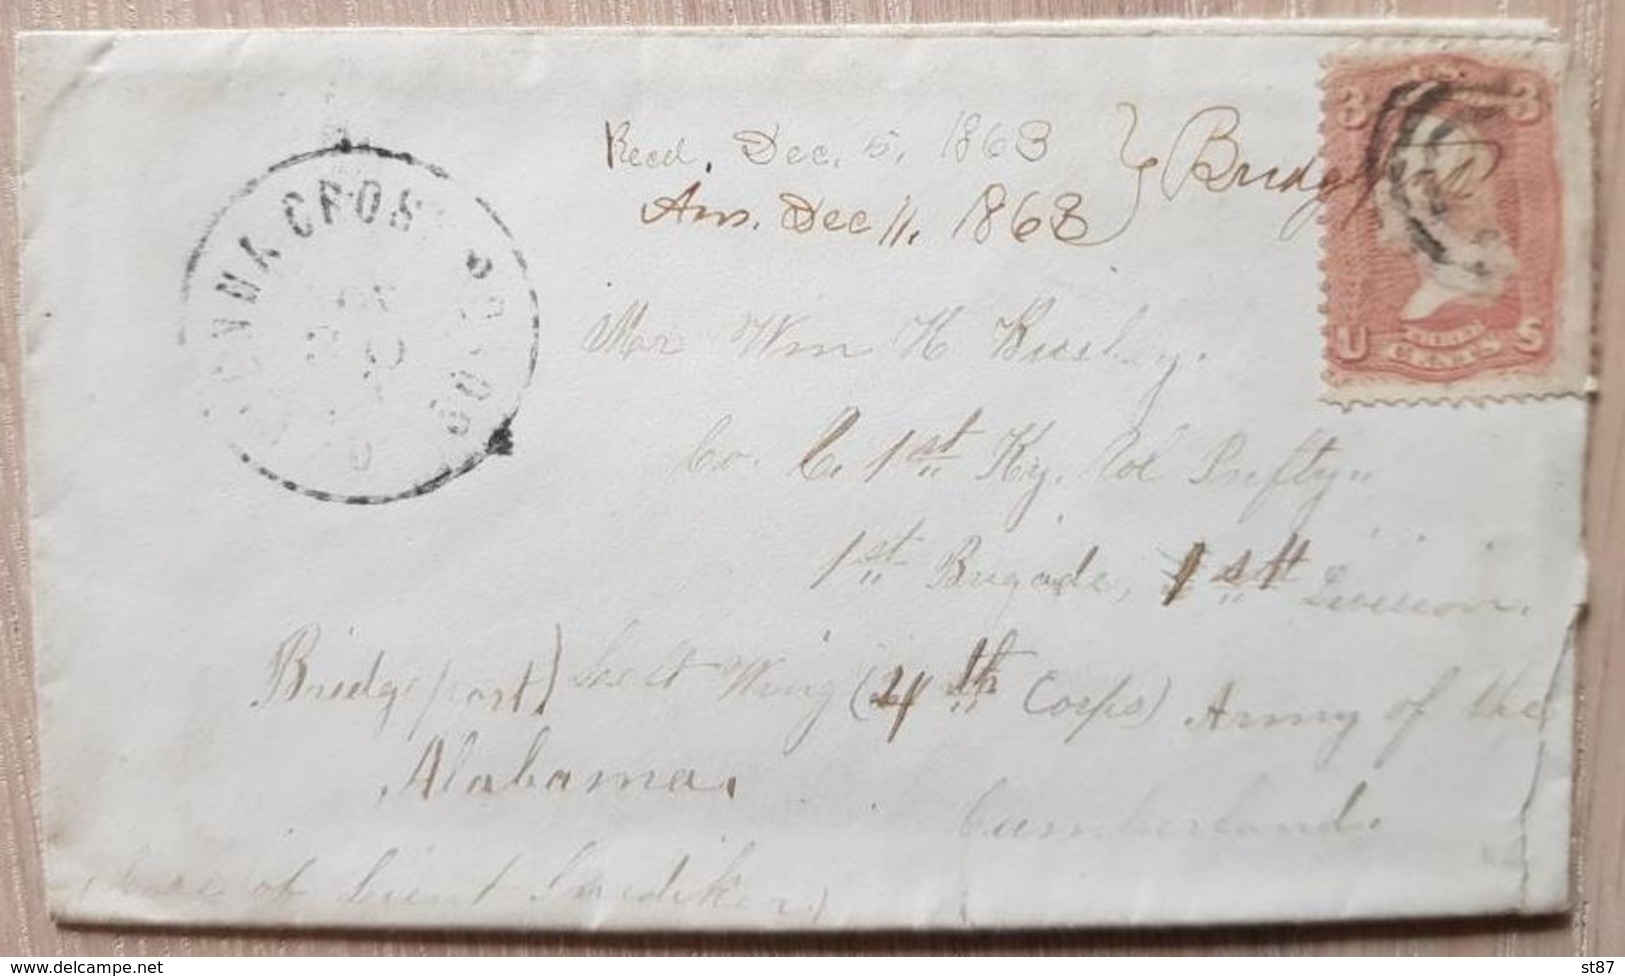 Recd. Dec. 5. 1863 } Bridgeport
Ans. Dec 11. 1863
3 3
U S
THREE
CENTS
Mr Wm H Busbey.
Co. C. 1st Ky. Vol Infty.
1st Brigade, 1st Division.
Bridgeport) Left Wing (4th Corps) Army of the
Alabama.
Cumberland.
(Care of Lieut Snediker)
www.delcampe.net
st87